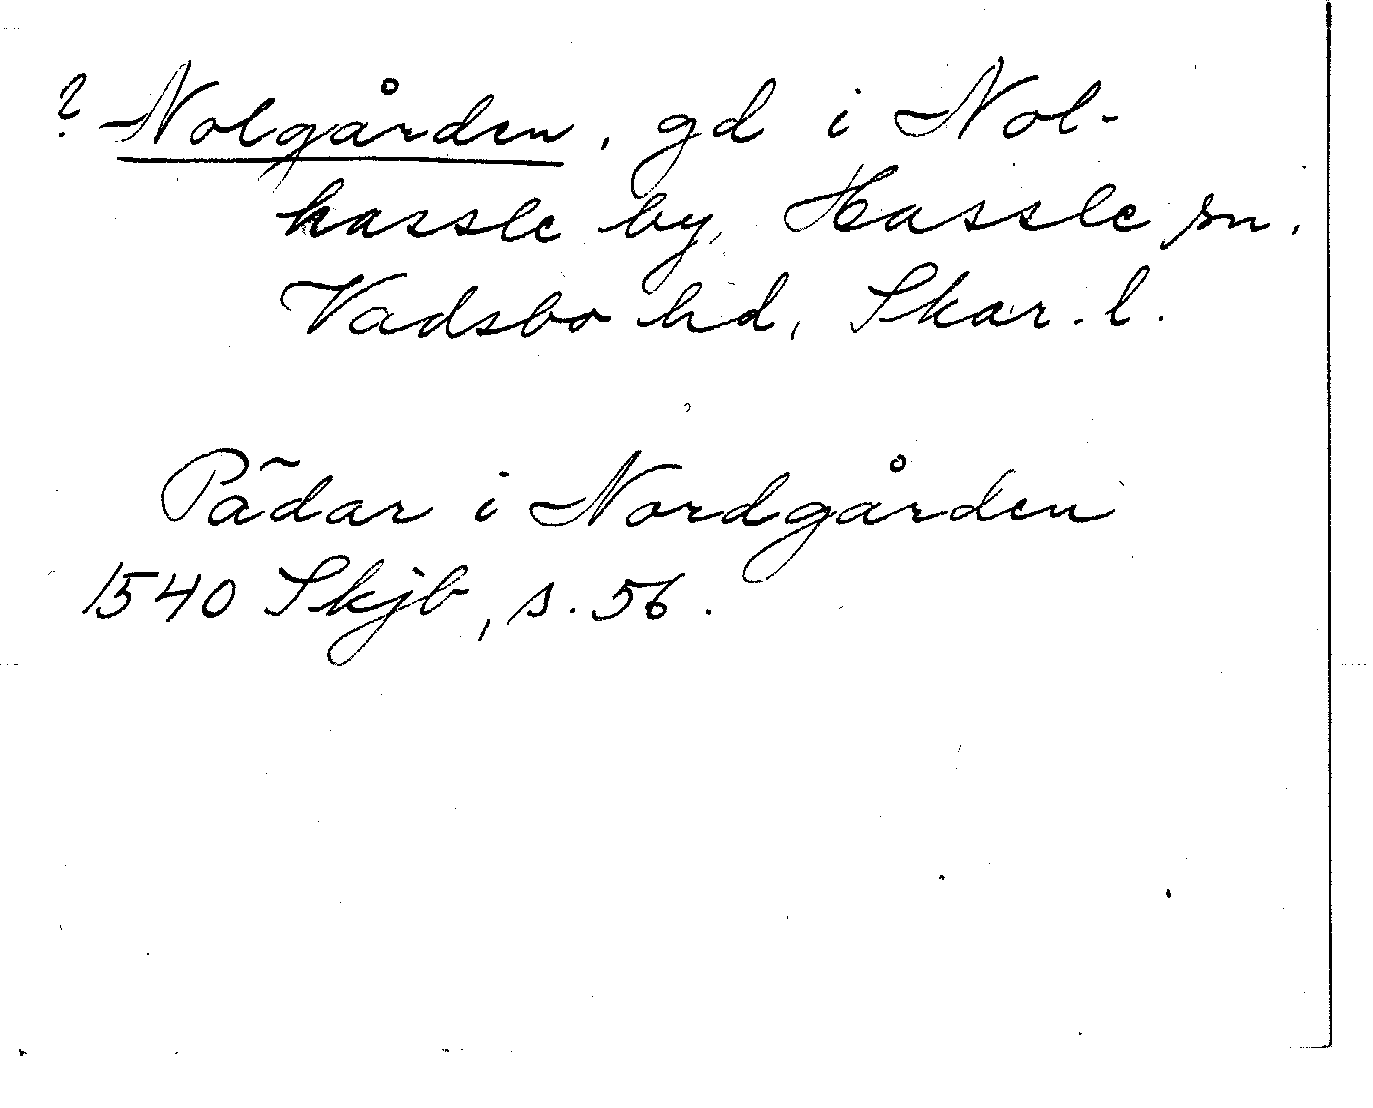 ? Nolgården, gd i Nol-
hassle by, Hassle sn,
Vadsbo hd, Skar. l.
Pädar i Nordgården
1540 Skjb, s. 56.